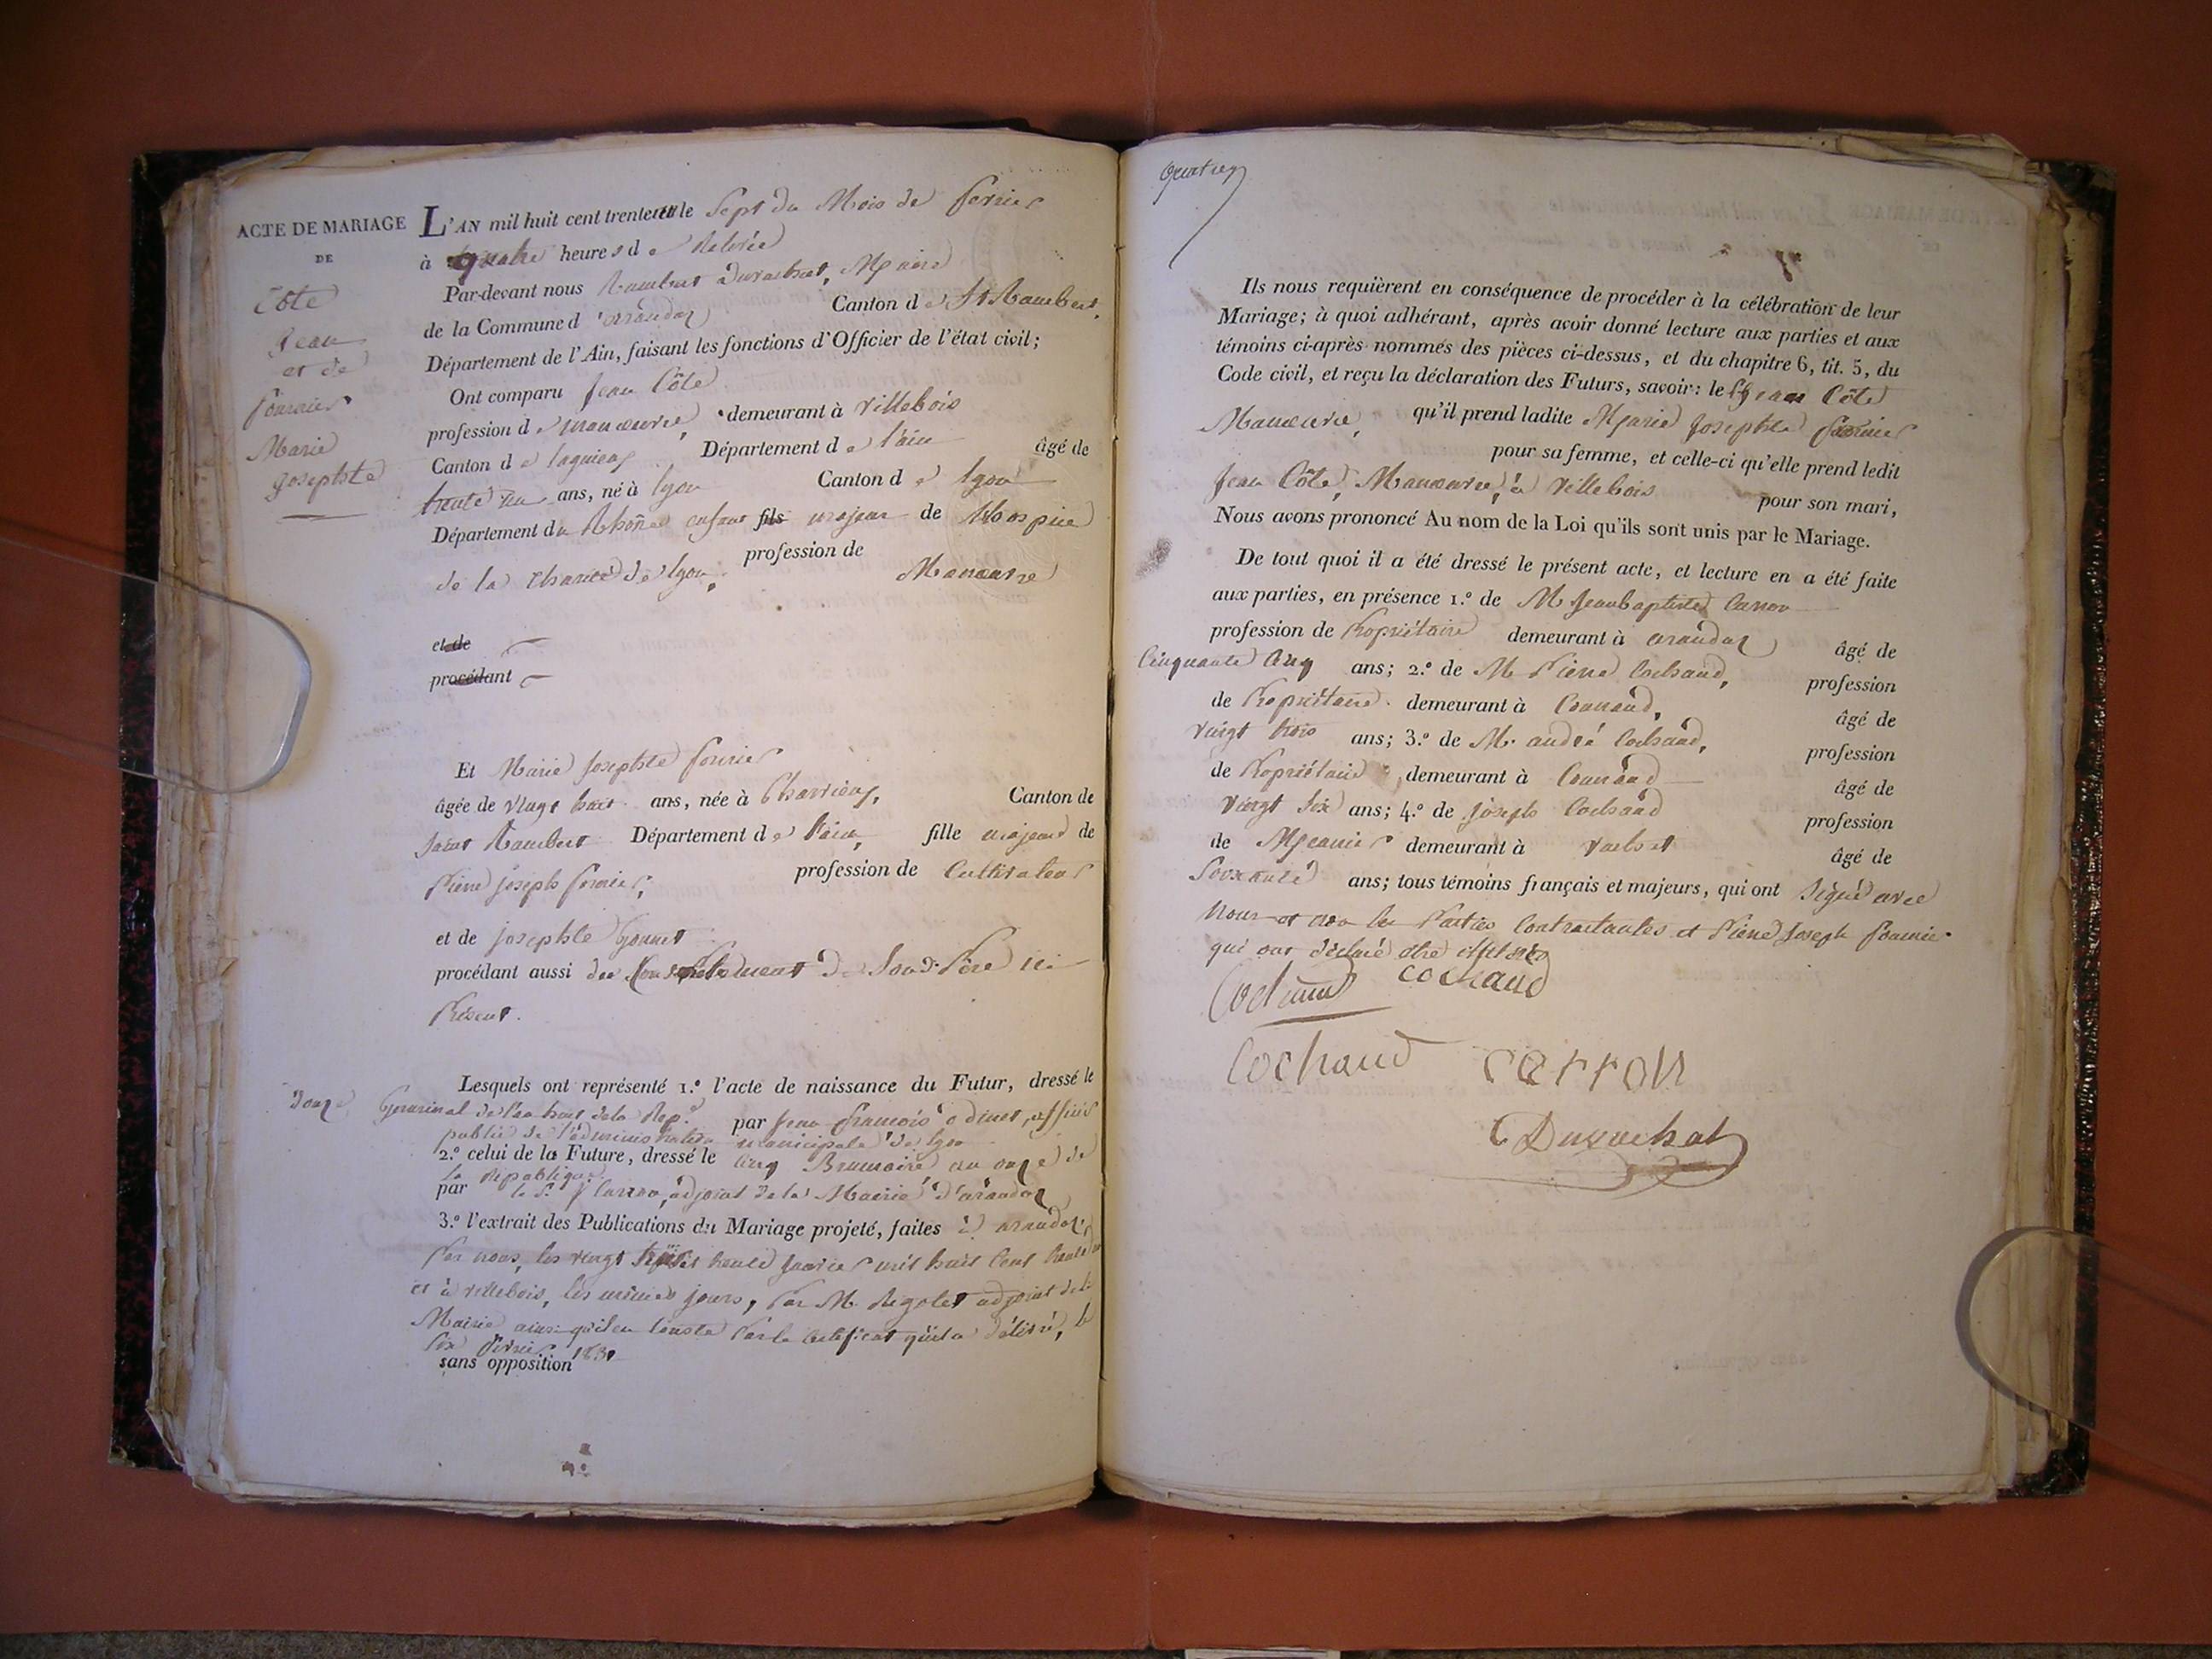 ACTE DE MARIAGE
DE
Côte
Jean
et de
fournier
Marie
Josephte
L'AN mil huit cent trente et un le Sept du Mois de fevrier
à quatre heures de Relevée
Par-devant nous Rambert Duruchat, Maire
de la Commune d'arandaz Canton de St Rambert,
Département de l'Ain, faisant les fonctions d'Officier de l'état civil;
Ont comparu Jean Côte
profession de manœuvre, demeurant à Villebois
Canton de lagnieu Département de l'ain âgé de
trente un ans, né à lyon Canton de lyon
Département du Rhône enfant fils majeur de l'hospice
de la Charité de lyon, profession de Manœuvre
et de
procédant
Et Marie Josephte fournier
âgée de vingt huit ans, née à Charvieux, Canton de
Saint Rambert Département de l'ain, fille majeure de
Pierre Joseph fournier, profession de Cultivateur
et de Josephte Gonnet
procédant aussi du Consentement de Son d. Père ici
Présent.
Lesquels ont représenté 1.º l'acte de naissance du Futur, dressé le
douze Germinal de l'an huit de la Rep.e par Jean françois odinet, officier
public de l'administration municipale de lyon
2.º celui de la Future, dressé le cinq Brumaire an onze de
la République
par le Sr. Carron, adjoint de la Mairie d'arandaz
3.º l'extrait des Publications du Mariage projeté, faites à arandaz,
Par nous, les vingt trois et trente Janvier mil huit Cent trente un
et à Villebois, les mêmes jours, Par M. Rigolet adjoint de la
Mairie ainsi qu'il en Conste Par le Certificat qu'il a délivré, le
Six fevrier 1831
sans opposition
Ils nous requièrent en conséquence de procéder à la célébration de leur
Mariage; à quoi adhérant, après avoir donné lecture aux parties et aux
témoins ci-après nommés des pièces ci-dessus, et du chapitre 6, tit. 5, du
Code civil, et reçu la déclaration des Futurs, savoir: le Sr jean Côte
Manœuvre, qu'il prend ladite Marie Josephte fournier
pour sa femme, et celle-ci qu'elle prend ledit
Jean Côte, Manœuvre, à Villebois pour son mari,
Nous avons prononcé Au nom de la Loi qu'ils sont unis par le Mariage.
De tout quoi il a été dressé le présent acte, et lecture en a été faite
aux parties, en présence 1.º de M. Jean baptiste Carron
profession de Propriétaire demeurant à arandaz âgé de
Cinquante Cinq ans; 2.º de M. Pierre Cochand, profession
de Propriétaire demeurant à Connand, âgé de
vingt trois ans; 3.º de M. andré Cochand, profession
de Propriétaire demeurant à Connand âgé de
vingt Six ans; 4.º de Joseph Cochand profession
de Meunier demeurant à âgé de
Soixante ans; tous témoins français et majeurs, qui ont Signé avec
nous et non les Parties Contractantes et Pierre Joseph fournier
qui ont déclaré être illitérés
Cochand cochaud
Cochaud carron
Duruchat